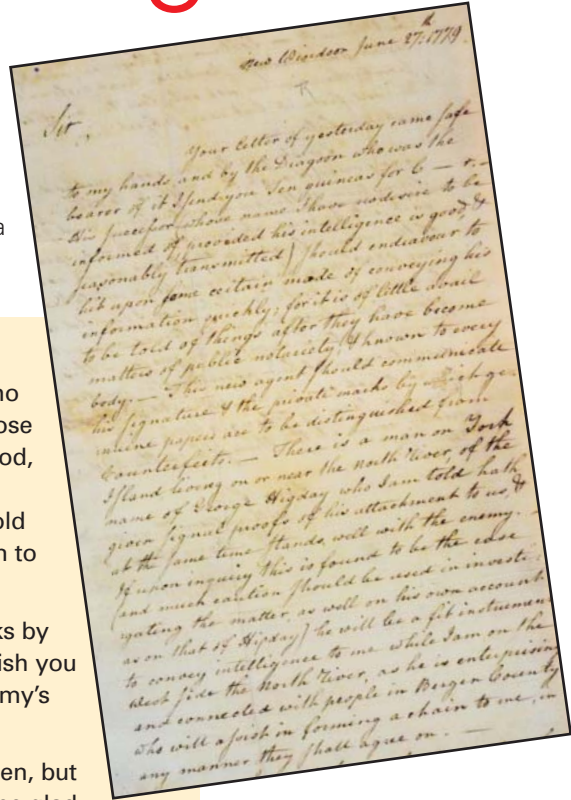 New Windsor June 27th: 1779
Sir,
Your letter of yesterday came safe
to my hands, and by the Dragoon who was the
bearer of it I send you Ten guineas for C— r.—
His successor (whose name I have no desire to be
informed of provided his intelligence is good, &
seasonably transmitted) should endeavour to
hit upon some certain mode of conveying his
information quickly; for it is of little avail
to be told of things after they have become
matters of public notoriety, & known to every
body.— This new agent should communicate
his signature & the private marks by which ge-
nuine papers are to be distinguished from
Counterfeits.— There is a man on York
Island living on or near the North River, of the
name of George Higday who I am told hath
given signal proofs of his attachment to us, &
at the same time stands well with the enemy.
If upon inquiry this is found to be the case
(and much caution should be used in investi-
gating the matter, as well on his own account
as on that of Higday) he will be a fit instrument
to convey intelligence to me while I am on the
west side the North River, as he is enterprising
and connected with people in Bergen County
who will assist in forming a chain to me, in
any manner they shall agree on.—
a
no
ose
od,
old
n to
ks by
ish you
my's
en, but